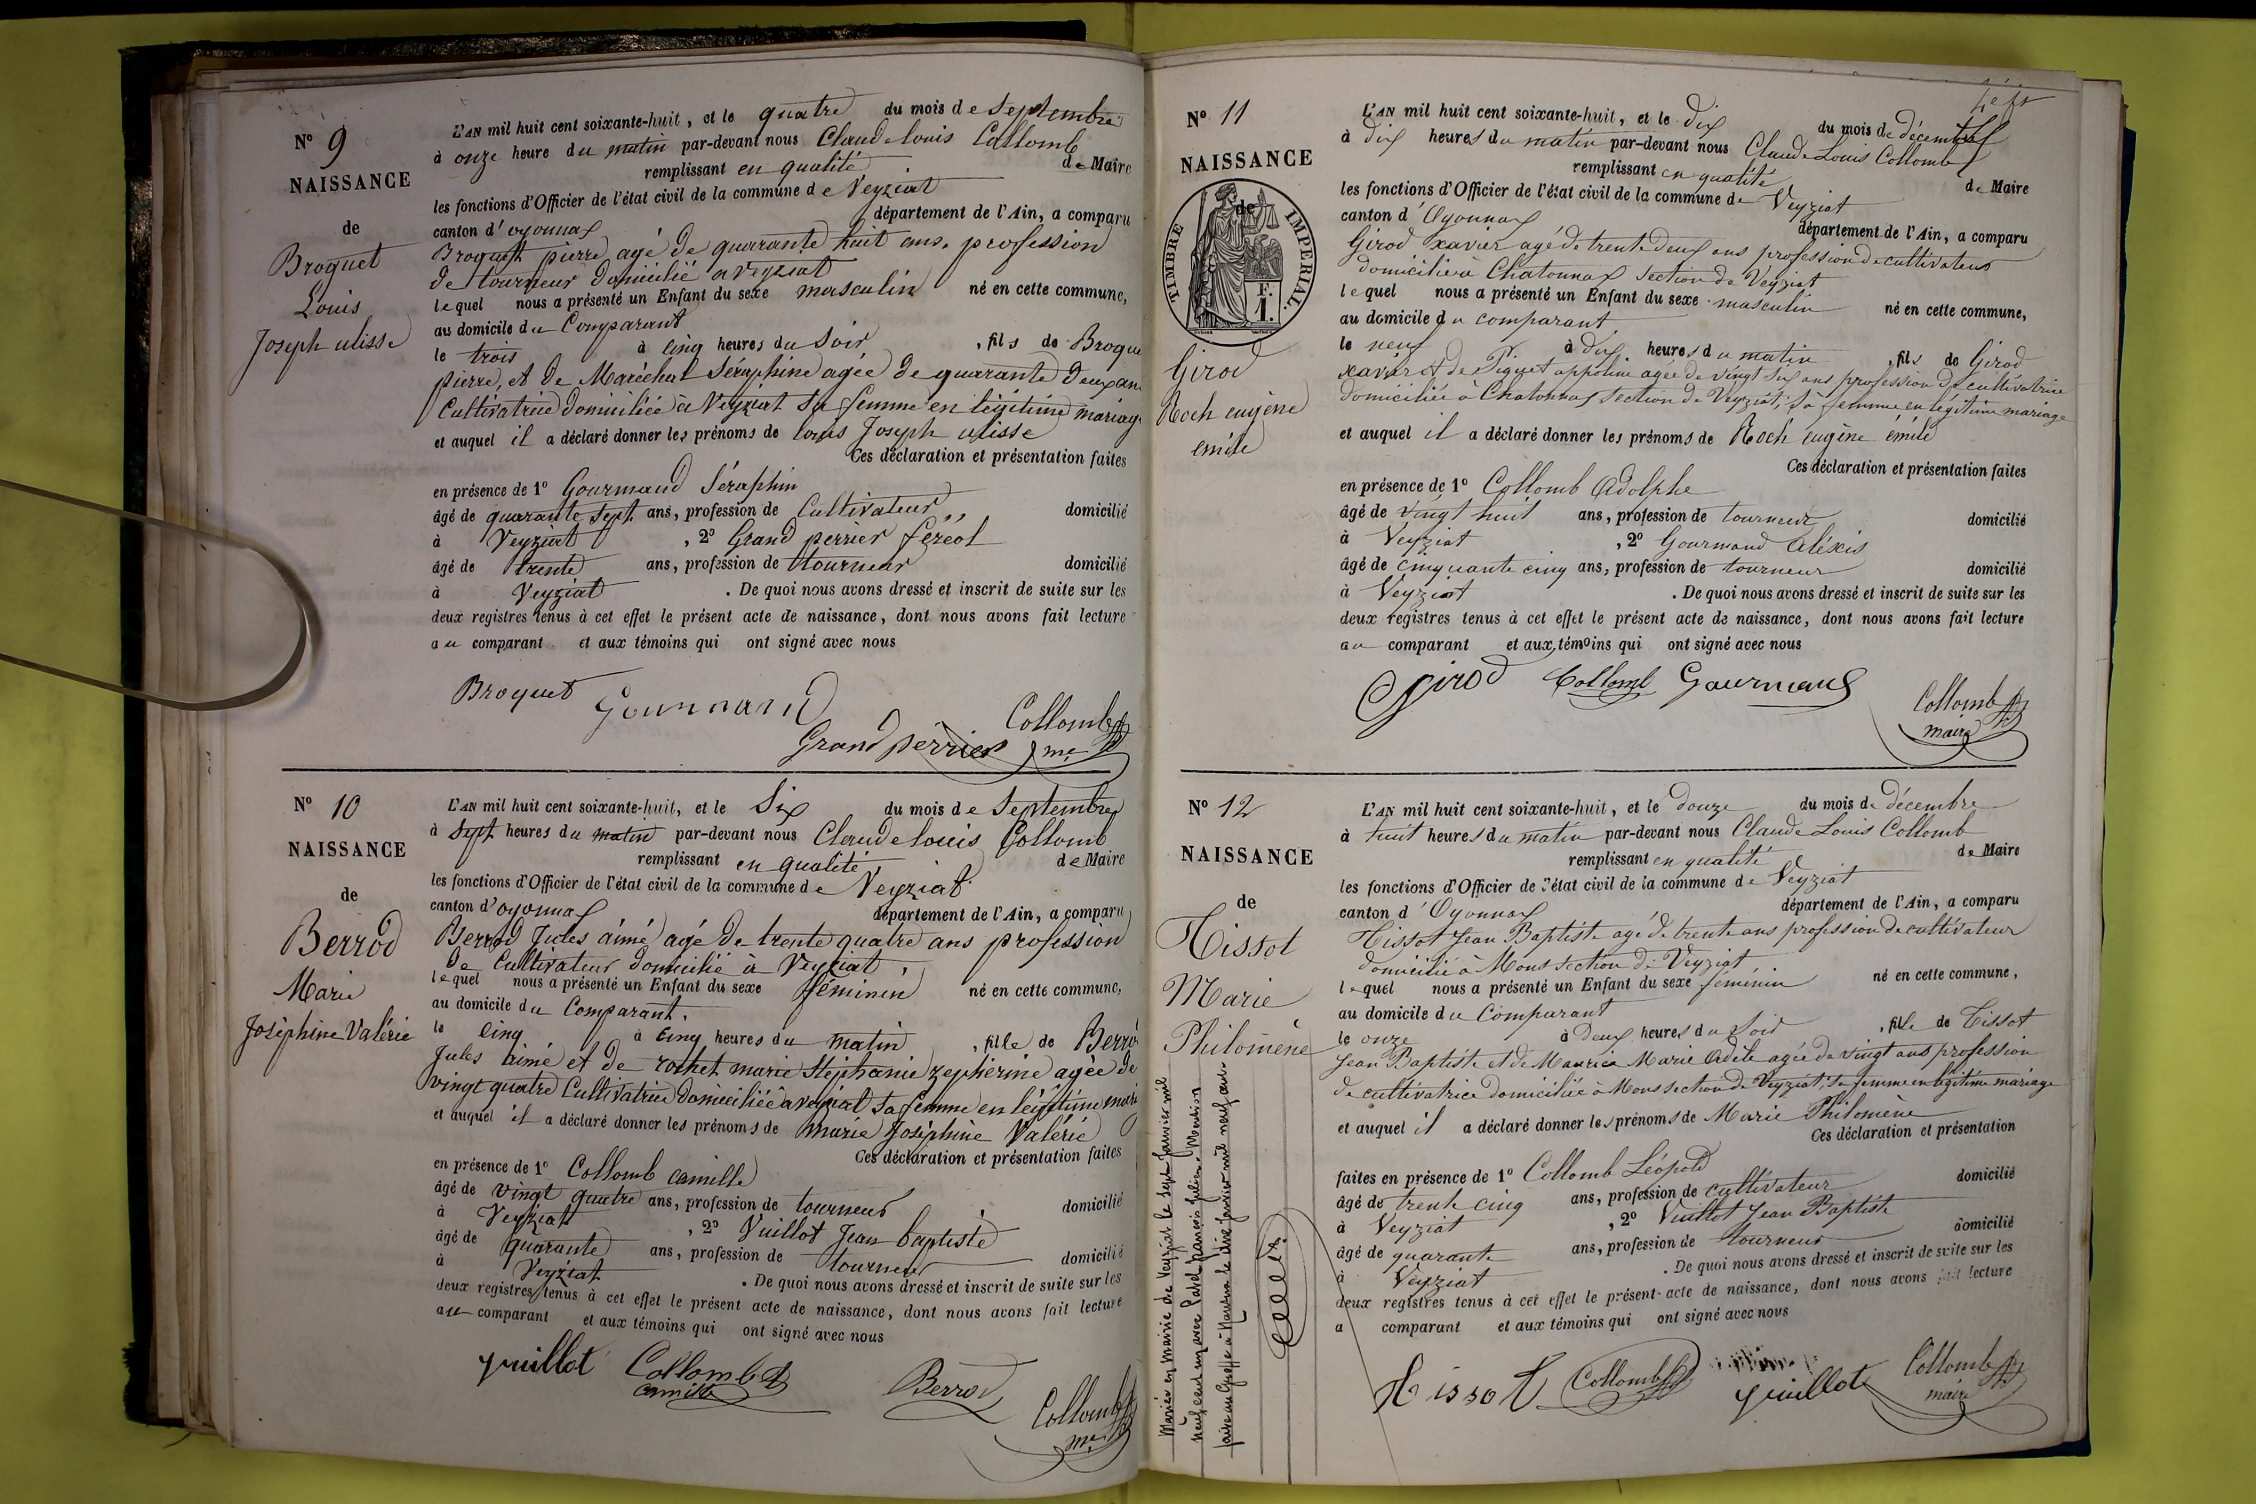 N° 9
NAISSANCE
de
Broquet
Louis
Joseph ulisse
L'AN mil huit cent soixante-huit, et le quatre du mois de Septembre
à onze heure du matin par-devant nous Claude louis Collomb
remplissant en qualité de Maire
les fonctions d'Officier de l'état civil de la commune de Veyziat
canton d'oyonnax département de l'Ain, a comparu
Broquet pierre agé de quarante huit ans. profession
de tourneur Domicilié a veyziat
lequel nous a présenté un Enfant du sexe masculin né en cette commune,
au domicile du Comparant
le trois à cinq heures du Soir, fils de Broque
pierre, et de Maréchal Séraphine agée de quarante Deux an
Cultivatrice Domiciliée à Veyziat Sa femme en légitime mariag
et auquel il a déclaré donner les prénoms de louis Joseph ulisse
Ces déclaration et présentation faites
en présence de 1° Gourmand Séraphin
âgé de quarante sept ans, profession de Cultivateur domicilié
à Veyziat, 2° Grand perrier féréol
âgé de trente ans, profession de tourneur domicilié
à Veyziat. De quoi nous avons dressé et inscrit de suite sur les
deux registres tenus à cet effet le présent acte de naissance, dont nous avons fait lecture
au comparant et aux témoins qui ont signé avec nous
Broquet Gourmand
Grand perrier Collomb
me
N° 10
NAISSANCE
de
Berrod
Marie
Joséphine Valérie
L'AN mil huit cent soixante-huit, et le Six du mois de Septembre
à Sept heures du matin par-devant nous Claude louis Collomb
remplissant en qualité de Maire
les fonctions d'Officier de l'état civil de la commune de Veyziat
canton d'oyonnax département de l'Ain, a comparu
Berrod Jules aimé agé de trente quatre ans profession
de Cultivateur domicilié à Veyziat,
lequel nous a présenté un Enfant du sexe féminin né en cette commune,
au domicile du Comparant.
le cinq à cinq heures du matin, fille de Berro
Jules aimé et de rochet marie Stéphanie zepherine agée de
vingt quatre Cultivatrice domiciliée a veyziat Sa femme en légitime mari
et auquel il a déclaré donner les prénoms de marie Joséphine Valérie
Ces déclaration et présentation faites
en présence de 1° Collomb camille
âgé de vingt quatre ans, profession de tourneur domicilié
à Veyziat, 2° Vuillot Jean baptiste
âgé de quarante ans, profession de tourneur domicilié
à Veyziat. De quoi nous avons dressé et inscrit de suite sur les
deux registres tenus à cet effet le présent acte de naissance, dont nous avons fait lecture
au comparant et aux témoins qui ont signé avec nous
Vuillot Collomb
camille Berrod Collomb
me
N° 11
NAISSANCE
de
TIMBRE IMPERIAL.
F.
1.
Girod
Roch eugène
emile
L'AN mil huit cent soixante-huit, et le dix du mois de décembre
à dix heures du matin par-devant nous Claude Louis Collomb
remplissant en qualité de Maire
les fonctions d'Officier de l'état civil de la commune de Veyziat
canton d'Oyonnax département de l'Ain, a comparu
Girod xavier agé de trente deux ans profession de cultivateur
domicilié à Chatonnax section de Veyziat
lequel nous a présenté un Enfant du sexe masculin né en cette commune,
au domicile du comparant
le neuf à dix heures du matin, fils de Girod
xavier et de Piquet appoline agée de vingt six ans profession de cultivatrice
domiciliée à Chatonnax section de Veyziat, Sa femme en légitime mariage
et auquel il a déclaré donner les prénoms de Roch eugène émile
Ces déclaration et présentation faites
en présence de 1° Collomb Adolphe
âgé de vingt huit ans, profession de tourneur domicilié
à Veyziat, 2° Gourmand Alexis
âgé de cinquante cinq ans, profession de tourneur domicilié
à Veyziat. De quoi nous avons dressé et inscrit de suite sur les
deux registres tenus à cet effet le présent acte de naissance, dont nous avons fait lecture
au comparant et aux témoins qui ont signé avec nous
Girod Collomb Gourmand Collomb
maire
N° 12
NAISSANCE
de
Tissot
Marie
Philomène
Mariée en mairie de Veyziat le sept janvier mil
neuf cent un avec Patel francis julien. Mention
faite au Greffe à Nantua le dix janvier mil neuf cent un.
L'AN mil huit cent soixante-huit, et le douze du mois de décembre
à huit heures du matin par-devant nous Claude Louis Collomb
remplissant en qualité de Maire
les fonctions d'Officier de l'état civil de la commune de Veyziat
canton d'Oyonnax département de l'Ain, a comparu
Tissot Jean Baptiste agé de trente ans profession de cultivateur
domicilié à Mons section de Veyziat
lequel nous a présenté un Enfant du sexe féminin né en cette commune,
au domicile du Comparant
le onze à deux heures du Soir, fille de Tissot
Jean Baptiste et de Maurice Marie Adèle agée de vingt ans profession
de cultivatrice domiciliée à Mons section de Veyziat, Sa femme en légitime mariage
et auquel il a déclaré donner les prénoms de Marie Philomène
Ces déclaration et présentation
faites en présence de 1° Collomb Léopold
âgé de trente cinq ans, profession de cultivateur domicilié
à Veyziat, 2° Vuillot Jean Baptiste
âgé de quarante ans, profession de tourneur domicilié
à Veyziat. De quoi nous avons dressé et inscrit de suite sur les
deux registres tenus à cet effet le présent acte de naissance, dont nous avons fait lecture
a comparant et aux témoins qui ont signé avec nous
Tissot Collomb Vuillot Collomb
maire